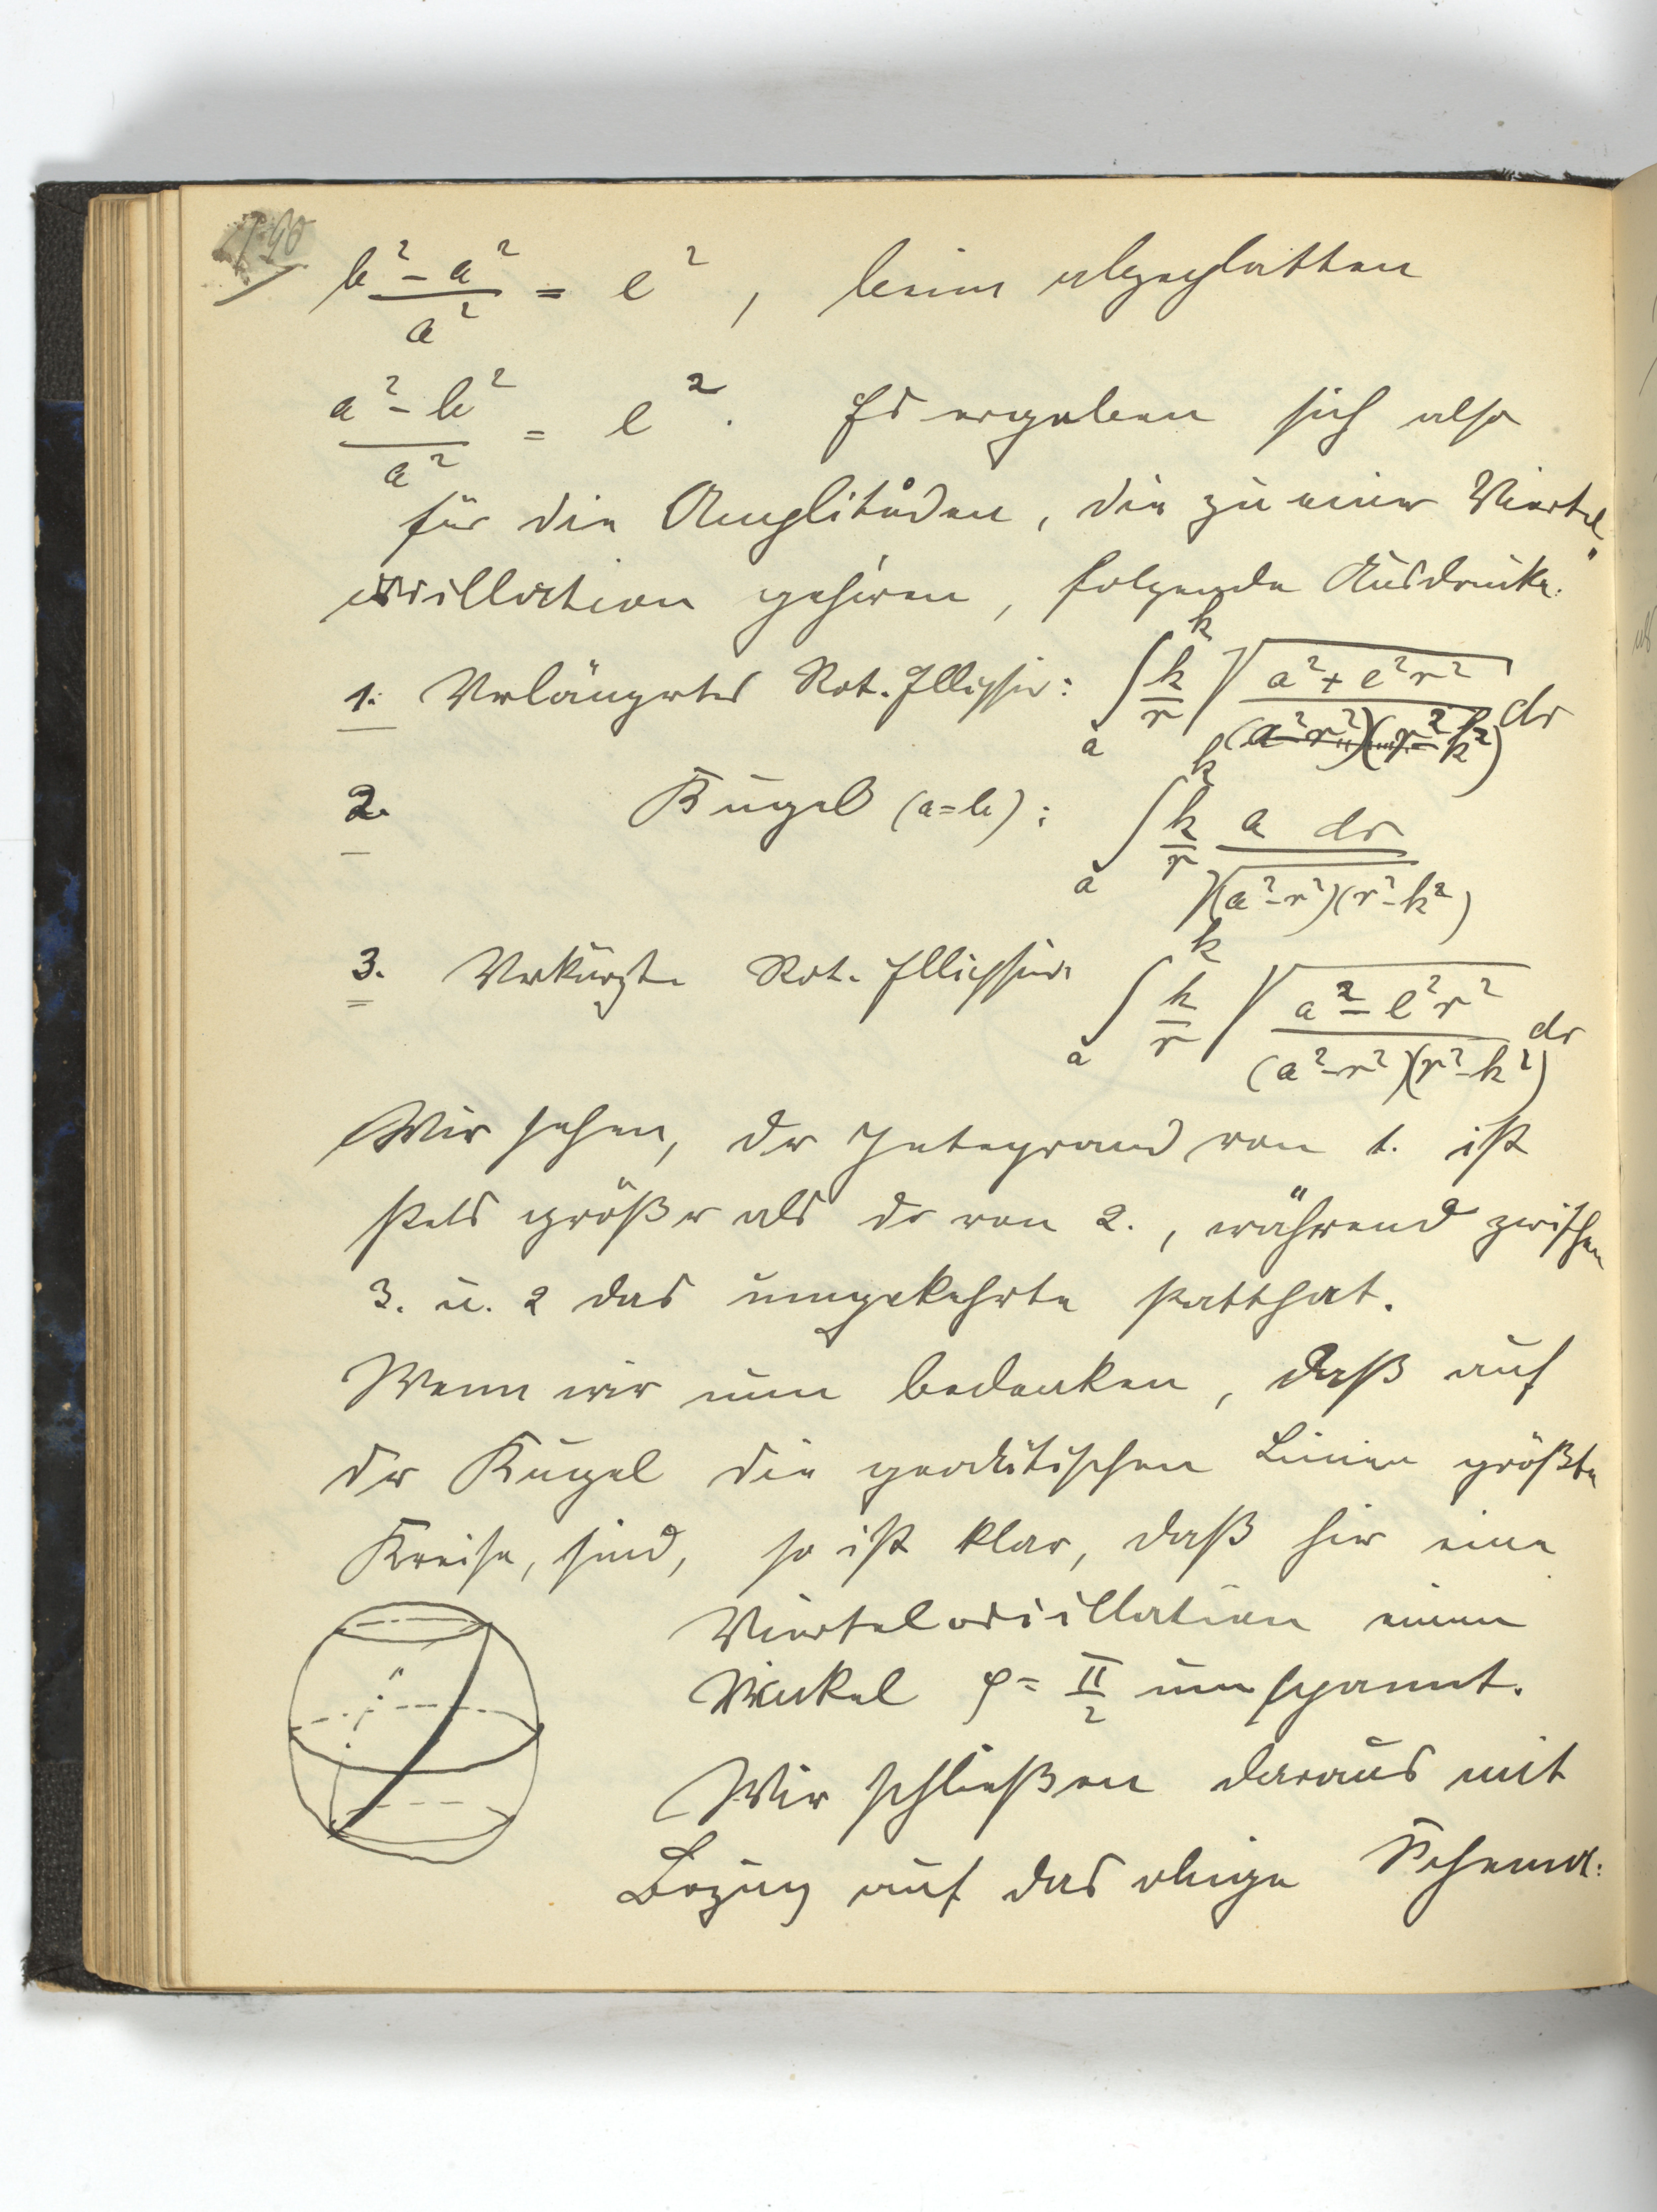 b² - a² / a² = e², beim abgeplatteten
a² - b² / a² = e². Es ergeben sich also
für die Amplituden, die zu einer Viertel-
oscillation gehören, folgende Ausdrücke:
1. Verlängertes Rot. Ellipsoid: ∫ₐᵏ k/r √( a² + e²r² / (a²-r²)(r²-k²) ) dr
2. Kugel (a=b): ∫ₐᵏ k/r a dr / √(a²-r²)(r²-k²)
3. Verkürzte Rot. Ellipsoid: ∫ₐᵏ k/r √( a² - e²r² / (a²-r²)(r²-k²) ) dr
Wir sehen, der Integrand von 1. ist
stets größer als der von 2., während zwischen
3. u. 2 das umgekehrte statthat.
Wenn wir nun bedenken, daß auf
der Kugel die geodätischen Linien größte
Kreise, sind, so ist klar, daß hier eine
Vierteloscillation einen
Winkel φ = π/2 umspannt.
Wir schließen daraus mit
Bezug auf das obige Schema: